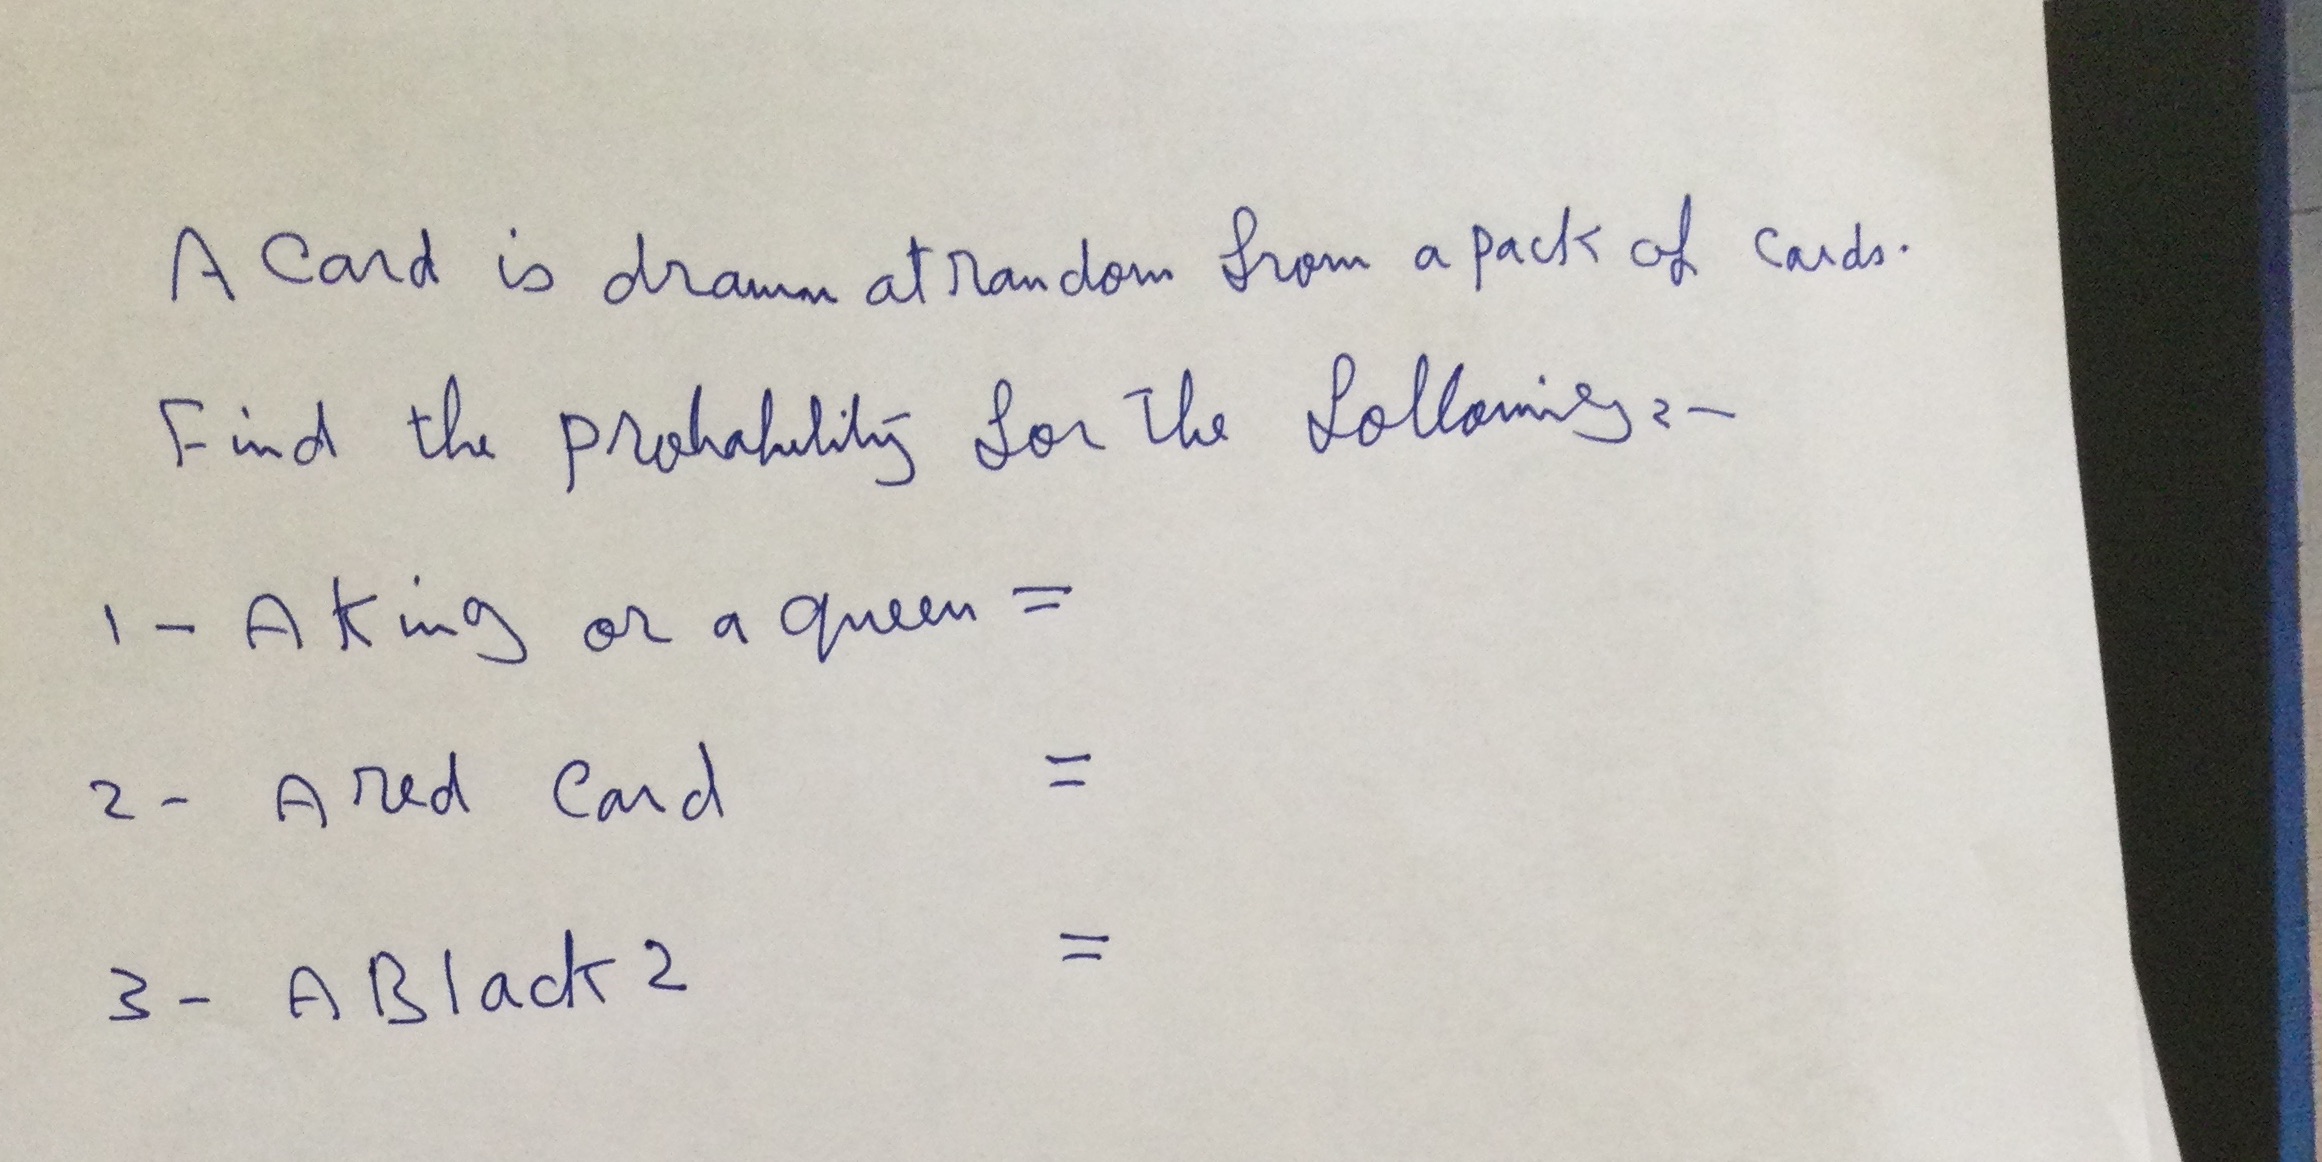 A Card is drawn at random from a pack of cards.
Find the probability for the following :-
1 - A King or a queen =
2 - A red Card =
3 - A Black 2 =